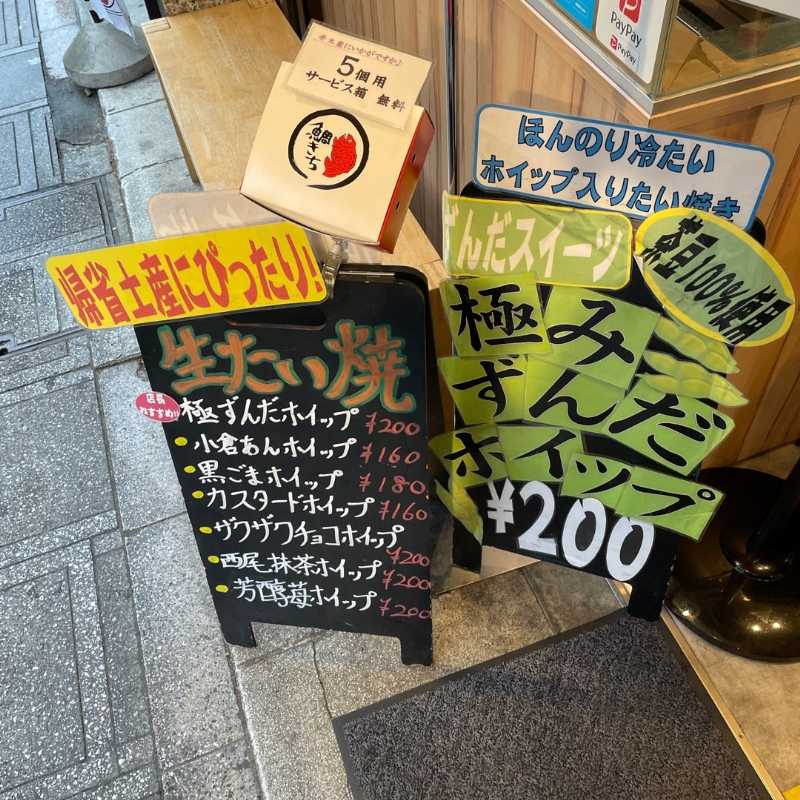 冬のお土産にいかがですか♪
5個用
サービス箱 無料
鯛きち
帰省土産にぴったり!
生たい焼
店長
おすすめ!!
極ずんだホイップ ¥200
小倉あんホイップ ¥160
黒ごまホイップ ¥180
カスタードホイップ ¥160
ザクザクチョコホイップ ¥200
西尾抹茶ホイップ ¥200
芳醇苺ホイップ ¥200
PayPay
PayPay
ほんのり冷たい
ホイップ入りたい焼き
ずんだスイーツ
茶豆100%使用
極み
ずんだ
ホイップ
¥200